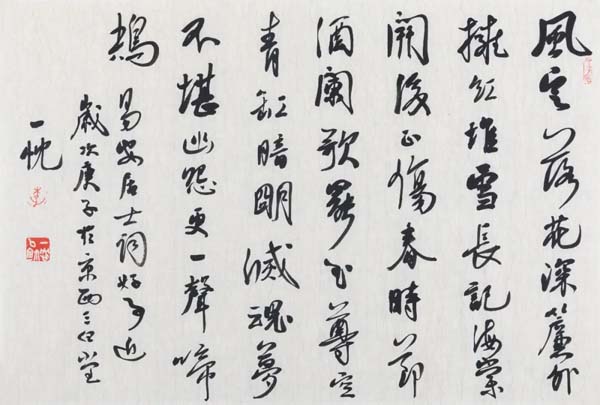 風定落花深簾外
擁紅堆雪長記海棠
開後正傷春時節
酒闌歌罷玉尊空
青缸暗明滅魂夢
不堪幽怨更一聲啼
鴂
易安居士詞好事近
歲次庚子於京西三口堂
一忱